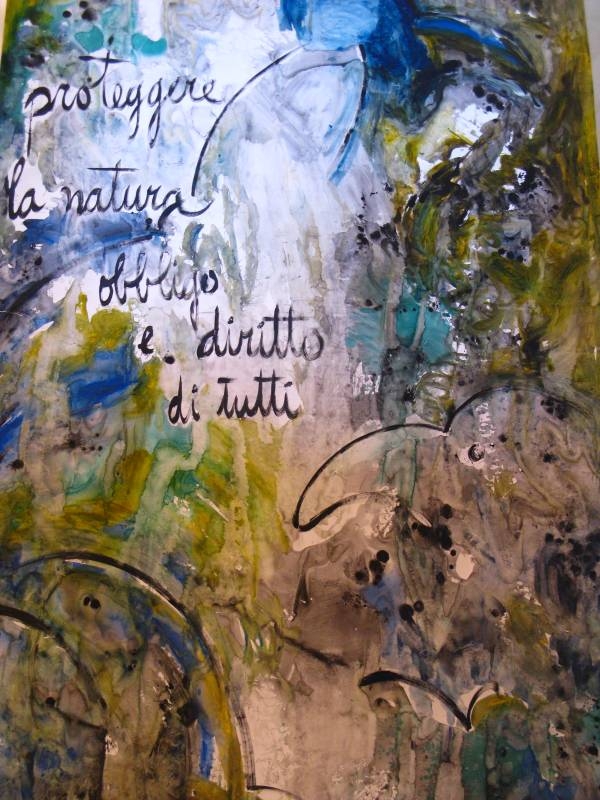 proteggere
la natura
obbligo
e. diritto
di tutti